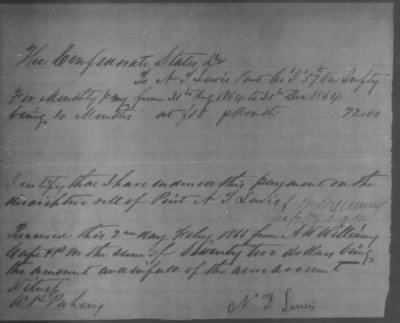 The Confederate States Dr
To N T Lewis Priv Co I 57 Va Infty
For Monthly Pay from 31st Aug 1864 to 31st Dec 1864
being 4 Months at $18 p Month 72.00
I certify that I have endorsed this payment on the
discriptive roll of Privt N T Lewis
Received this 2nd day Feby 1865 from A W Williams
Capt & the sum of Seventy two dollars being
the amount and in full of the above account
Witness
W P
N T Lewis